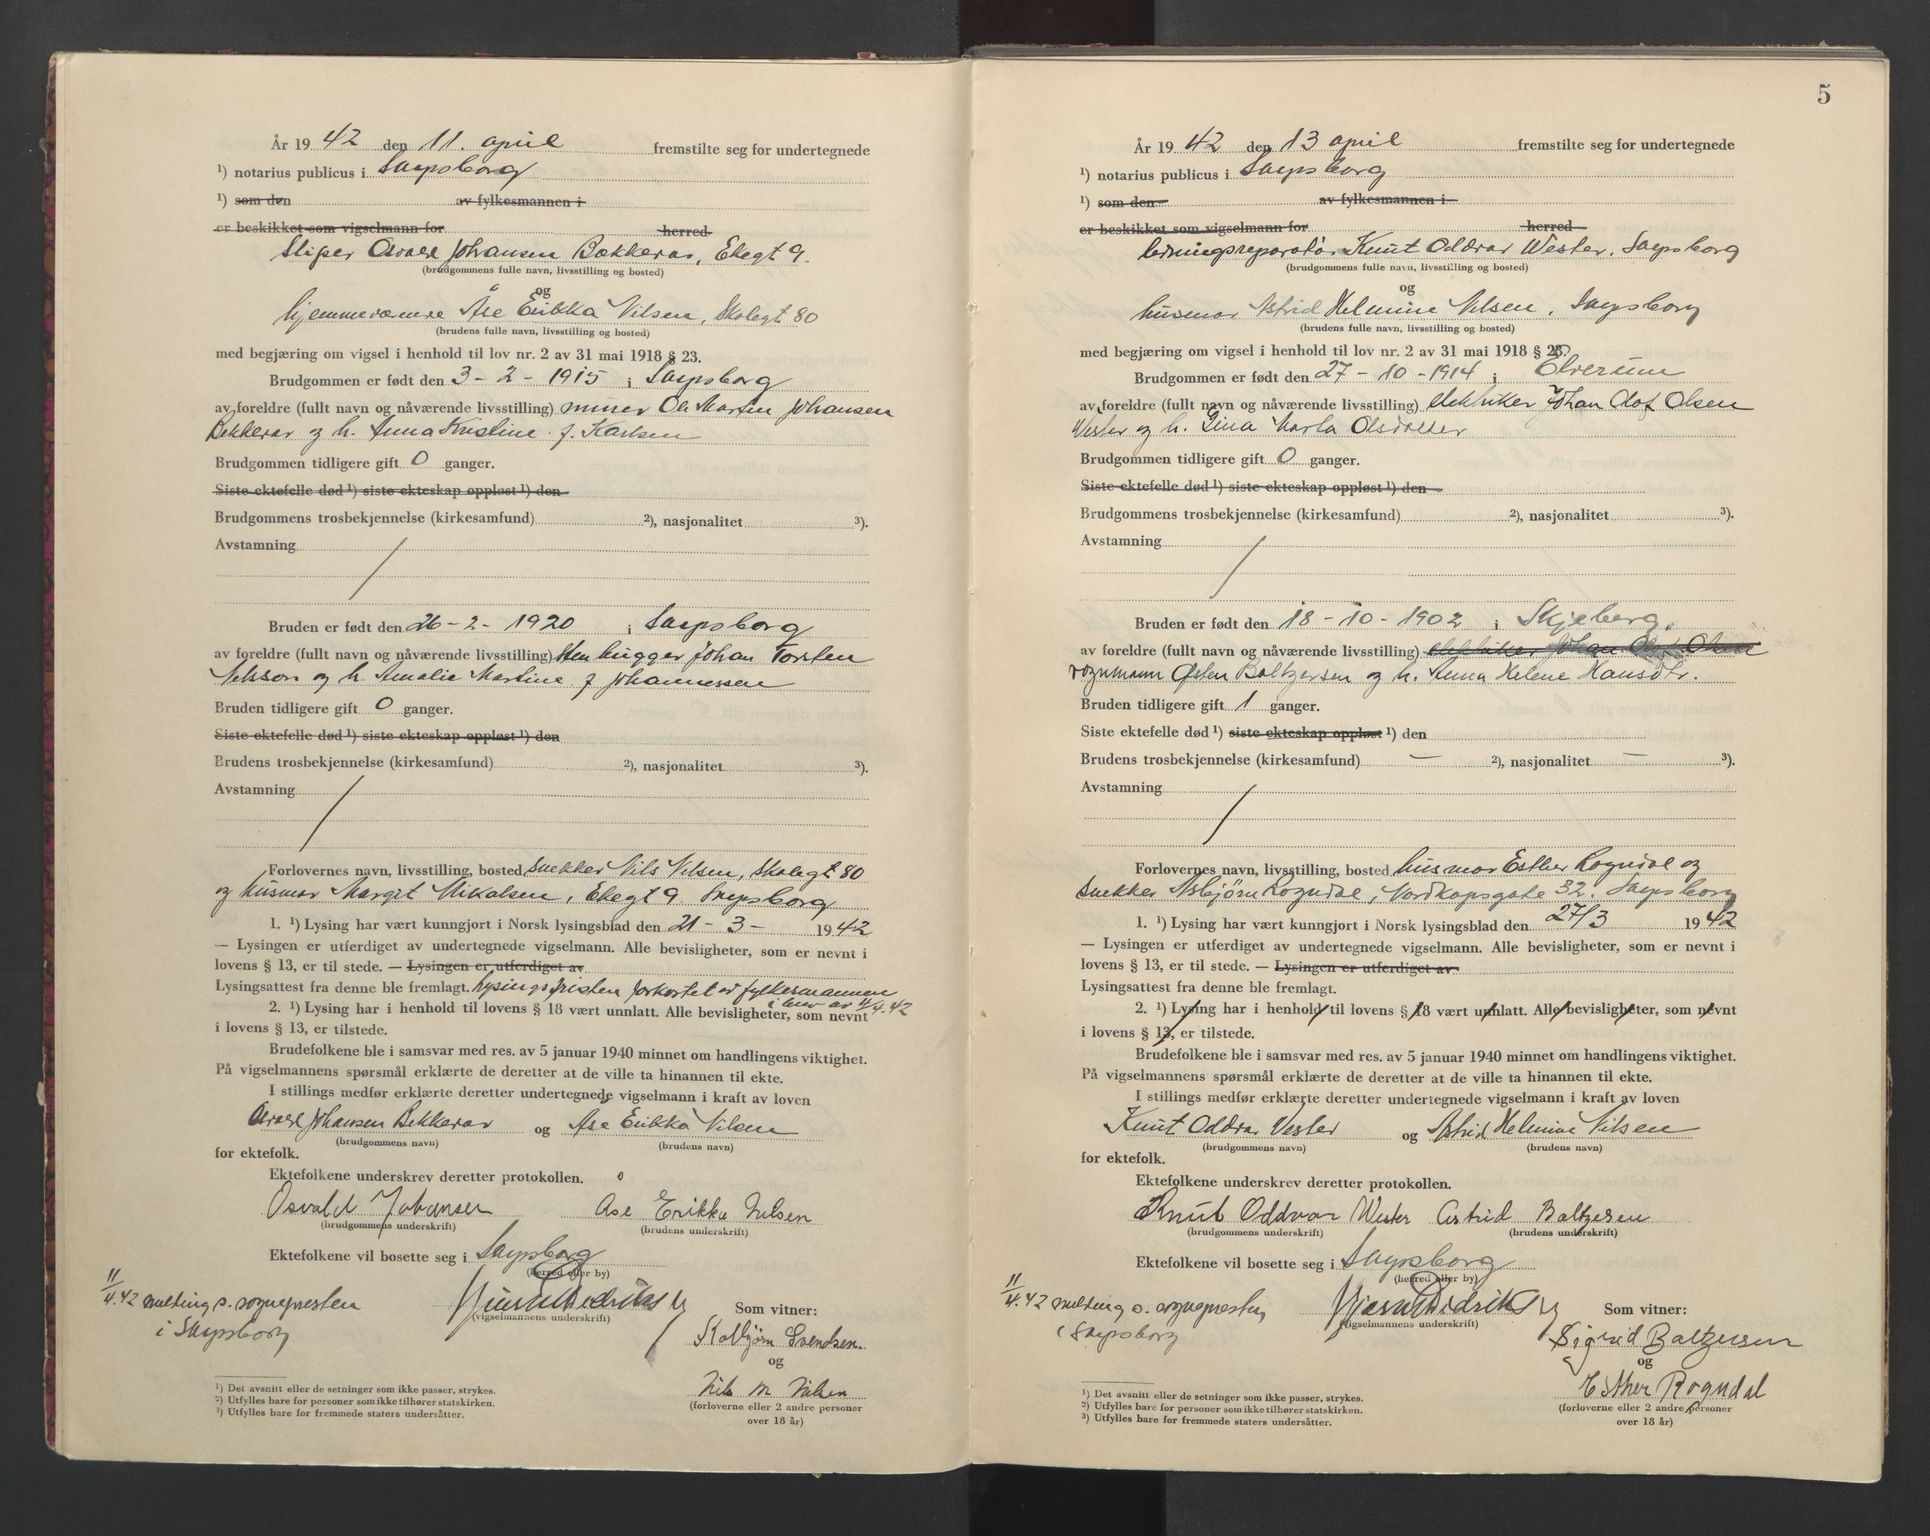 År 19 42 den 11. april fremstilte seg for undertegnede
¹) notarius publicus i Sarpsborg
¹) som den av fylkesmannen i
er beskikket som vigselmann for herred
Sliper Osvald Johansen Bækkevar, Ekegt 9.
(brudgommens fulle navn, livsstilling og bosted)
og
hjemmeværende Åse Erikka Nilsen, Skolegt 80
(brudens fulle navn, livsstilling og bosted)
med begjæring om vigsel i henhold til lov nr. 2 av 31 mai 1918 § 23.
Brudgommen er født den 3 - 2 - 1915 i Sarpsborg
av foreldre (fullt navn og nåværende livsstilling) murer Ole Martin Johansen
Bekkevar og h. Anna Kristine f. Karlsen
Brudgommen tidligere gift 0 ganger.
Siste ektefelle død ¹) siste ekteskap oppløst ¹) den
Brudgommens trosbekjennelse (kirkesamfund) ²), nasjonalitet ³).
Avstamning
Bruden er født den 26 - 2 - 1920 i Sarpsborg
av foreldre (fullt navn og nåværende livsstilling) Stenhugger Johan Torsten
Nilsson og h. Amalie Martine f Johannessen
Bruden tidligere gift 0 ganger.
Siste ektefelle død ¹) siste ekteskap oppløst ¹) den
Brudens trosbekjennelse (kirkesamfund) ²), nasjonalitet ³).
Avstamning
Forlovernes navn, livsstilling, bosted snekker Nils Nilsen, Skolegt 80
og husmor Margit Mikalsen, Ekegt 9 Sarpsborg
1. ¹) Lysing har vært kunngjort i Norsk lysingsblad den 21 - 3 - 19 42
— Lysingen er utferdiget av undertegnede vigselmann. Alle bevisligheter, som er nevnt i
lovens § 13, er til stede. — Lysingen er utferdiget av
Lysingsattest fra denne ble fremlagt. Lysingsfristen forkortet av fylkesmannen
i brev av 4/4.42
2. ¹) Lysing har i henhold til lovens § 18 vært unnlatt. Alle bevisligheter, som nevnt
i lovens § 13, er tilstede.
Brudefolkene ble i samsvar med res. av 5 januar 1940 minnet om handlingens viktighet.
På vigselmannens spørsmål erklærte de deretter at de ville ta hinannen til ekte.
I stillings medfør erklærte deretter undertegnede vigselmann i kraft av loven
Osvald Johansen Bekkevar og Åse Erikka Nilsen
(brudgommens navn) (brudens navn)
for ektefolk.
Ektefolkene underskrev deretter protokollen.
Osvald Johansen Åse Erikka Nilsen
(brudgommens underskrift) (brudens underskrift)
Ektefolkene vil bosette seg i Sarpsborg
(herred eller by)
11/4.42 melding s. sognepresten
i Sarpsborg
(vigselmannens underskrift)
Som vitner:
Kolbjørn Svendsen.
og
Nils M Nilsen
(forloverne eller 2 andre personer
over 18 år)
¹) Det avsnitt eller de setninger som ikke passer, strykes.
²) Utfylles bare for personer som ikke tilhører statskirken.
³) Utfylles bare for fremmede staters undersåtter.
5
År 19 42 den 13 april fremstilte seg for undertegnede
¹) notarius publicus i Sarpsborg
¹) som den av fylkesmannen i
er beskikket som vigselmann for herred
ledningsreparatør Knut Oddvar Wester, Sarpsborg
(brudgommens fulle navn, livsstilling og bosted)
og
husmor Astrid Helmine Nilsen, Sarpsborg
(brudens fulle navn, livsstilling og bosted)
med begjæring om vigsel i henhold til lov nr. 2 av 31 mai 1918 § 23.
Brudgommen er født den 27 - 10 - 1914 i Elverum
av foreldre (fullt navn og nåværende livsstilling) elektriker Johan Olof Olsen
Vester og h. Gina Marla Olsdatter
Brudgommen tidligere gift 0 ganger.
Siste ektefelle død ¹) siste ekteskap oppløst ¹) den
Brudgommens trosbekjennelse (kirkesamfund) ²), nasjonalitet ³).
Avstamning
Bruden er født den 18 - 10 - 1902 i Skjeberg.
av foreldre (fullt navn og nåværende livsstilling) elektriker Johan Olof Olsen
vognmann Østen Baltzersen og h. Anna Helene Hansdtr.
Bruden tidligere gift 1 ganger.
Siste ektefelle død ¹) siste ekteskap oppløst ¹) den
Brudens trosbekjennelse (kirkesamfund) — ²), nasjonalitet — ³).
Avstamning
Forlovernes navn, livsstilling, bosted husmor Esther Rogndal og
snekker Asbjørn Rogndal, Nordkapsgate 32. Sarpsborg
1. ¹) Lysing har vært kunngjort i Norsk lysingsblad den 27/3 19 42
— Lysingen er utferdiget av undertegnede vigselmann. Alle bevisligheter, som er nevnt i
lovens § 13, er til stede. — Lysingen er utferdiget av
Lysingsattest fra denne ble fremlagt.
2. ¹) Lysing har i henhold til lovens § 18 vært unnlatt. Alle bevisligheter, som nevnt
i lovens § 13, er tilstede.
Brudefolkene ble i samsvar med res. av 5 januar 1940 minnet om handlingens viktighet.
På vigselmannens spørsmål erklærte de deretter at de ville ta hinannen til ekte.
I stillings medfør erklærte deretter undertegnede vigselmann i kraft av loven
Knut Oddvar Vester og Astrid Helmine Nilsen
(brudgommens navn) (brudens navn)
for ektefolk.
Ektefolkene underskrev deretter protokollen.
Knut Oddvar Wester Astrid Baltzersen
(brudgommens underskrift) (brudens underskrift)
Ektefolkene vil bosette seg i Sarpsborg
(herred eller by)
11/4.42 melding s. sognepresten
i Sarpsborg
(vigselmannens underskrift)
Som vitner:
Sigrid Baltzersen
og
Esther Rogndal
(forloverne eller 2 andre personer
over 18 år)
¹) Det avsnitt eller de setninger som ikke passer, strykes.
²) Utfylles bare for personer som ikke tilhører statskirken.
³) Utfylles bare for fremmede staters undersåtter.